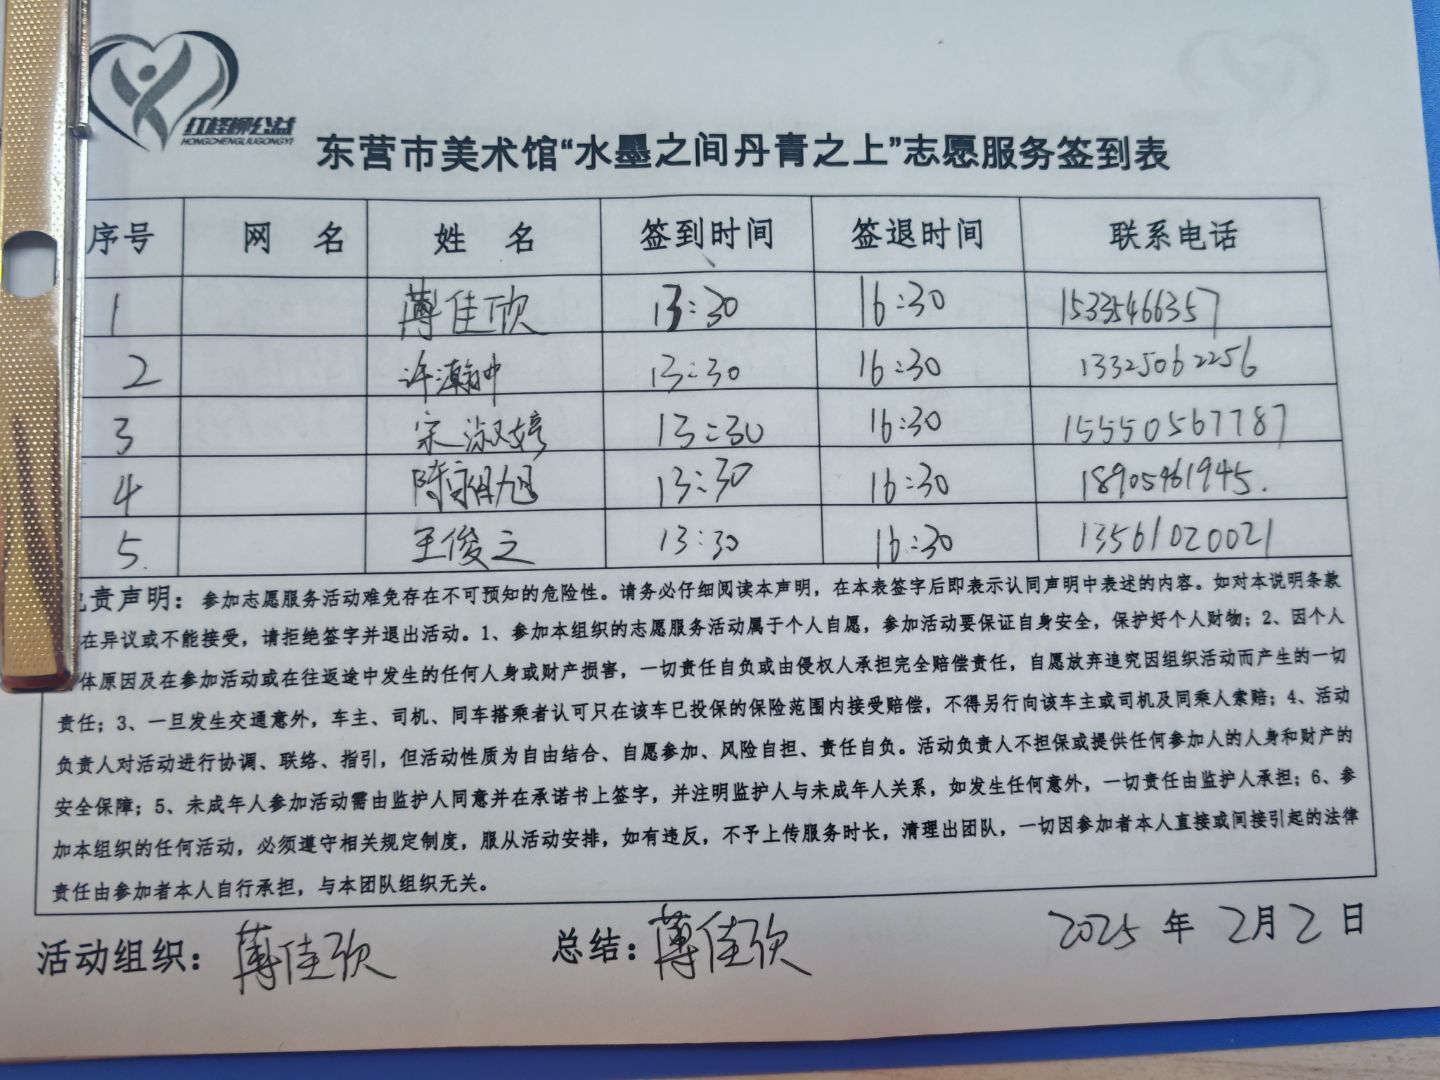 红柽柳公益
HONGCHENGLIUGONGYI
东营市美术馆“水墨之间丹青之上”志愿服务签到表
序号 网 名 姓 名 签到时间 签退时间 联系电话
1 薄佳欣 13:30 16:30 15335466357
2 许瀚翀 13:30 16:30 13325062256
3 宋淑婷 13:30 16:30 15550567787
4 陈祖旭 13:30 16:30 18905461945.
5. 王俊之 13:30 16:30 13561020021
责声明：参加志愿服务活动难免存在不可预知的危险性。请务必仔细阅读本声明，在本表签字后即表示认同声明中表述的内容。如对本说明条款
在异议或不能接受，请拒绝签字并退出活动。1、参加本组织的志愿服务活动属于个人自愿，参加活动要保证自身安全，保护好个人财物；2、因个人
体原因及在参加活动或在往返途中发生的任何人身或财产损害，一切责任自负或由侵权人承担完全赔偿责任，自愿放弃追究因组织活动而产生的一切
责任；3、一旦发生交通意外，车主、司机、同车搭乘者认可只在该车已投保的保险范围内接受赔偿，不得另行向该车主或司机及同乘人索赔；4、活动
负责人对活动进行协调、联络、指引，但活动性质为自由结合、自愿参加、风险自担、责任自负。活动负责人不担保或提供任何参加人的人身和财产的
安全保障；5、未成年人参加活动需由监护人同意并在承诺书上签字，并注明监护人与未成年人关系，如发生任何意外，一切责任由监护人承担；6、参
加本组织的任何活动，必须遵守相关规定制度，服从活动安排，如有违反，不予上传服务时长，清理出团队，一切因参加者本人直接或间接引起的法律
责任由参加者本人自行承担，与本团队组织无关。
活动组织：薄佳欣 总结：薄佳欣 2025年2月2日